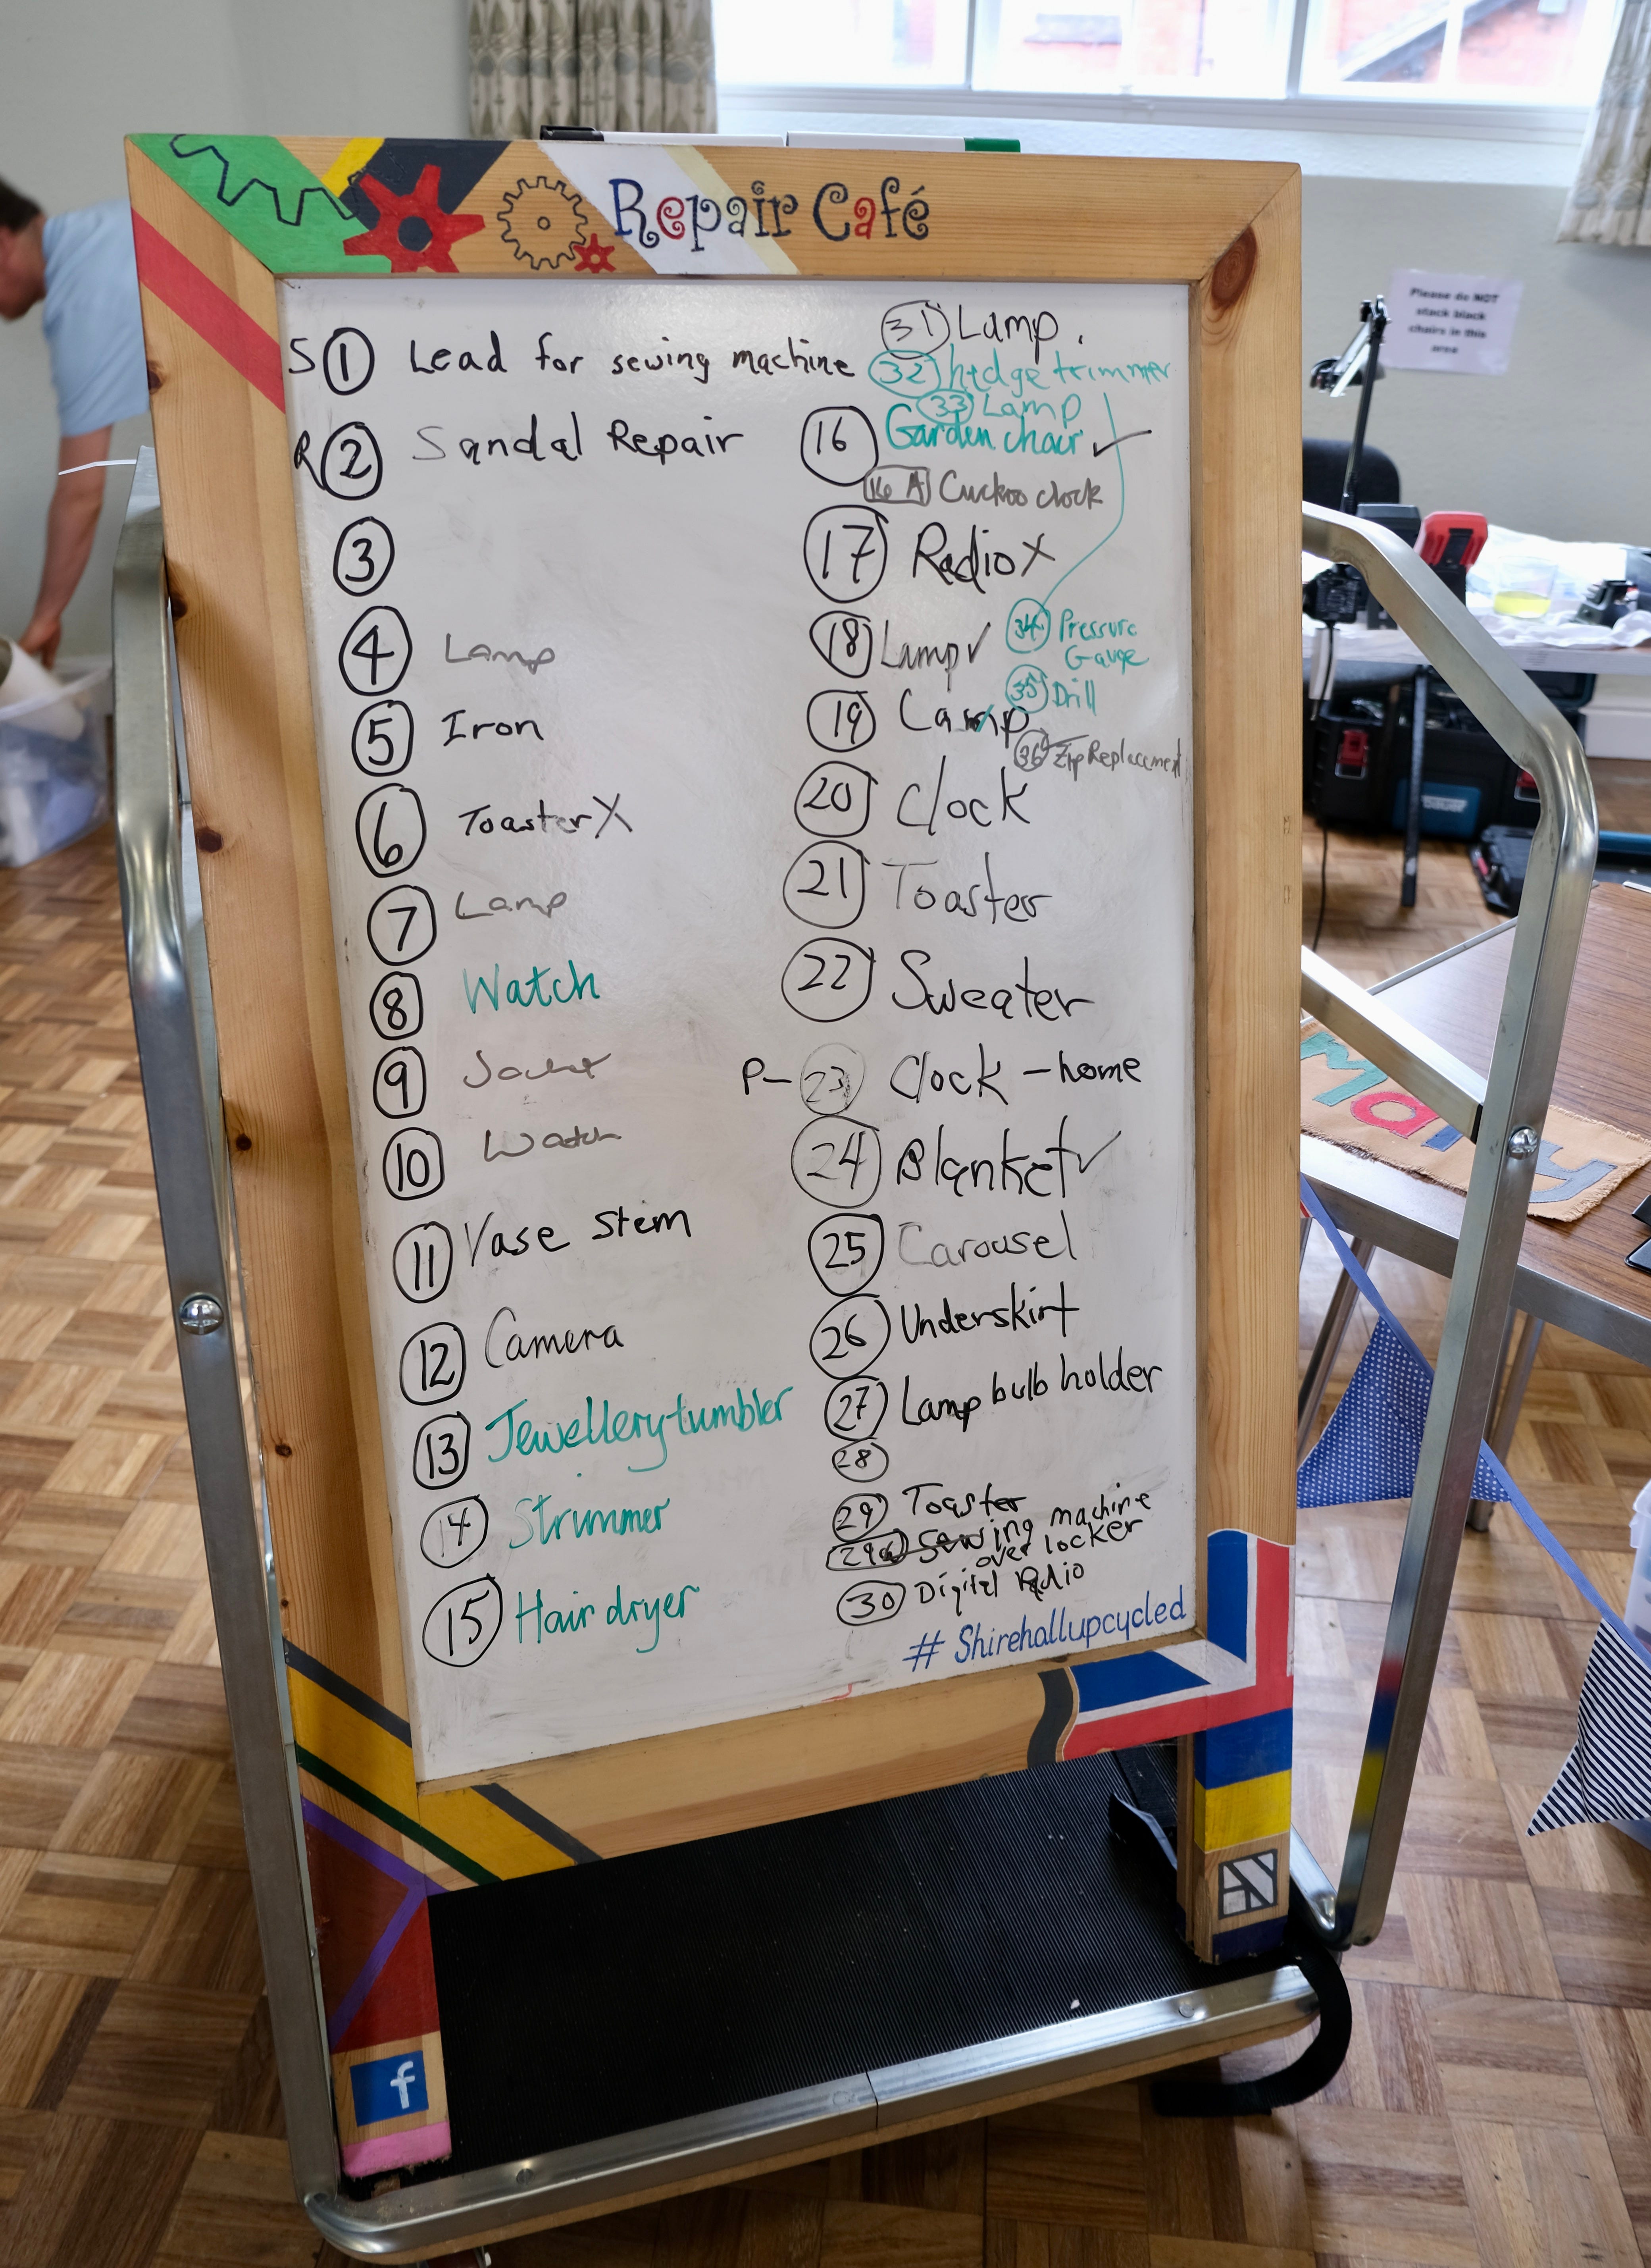 Repair Café
S 1 Lead for sewing machine
R 2 Sandal Repair
3
4 Lamp
5 Iron
6 Toaster X
7 Lamp
8 Watch
9
10 Watch
11 Vase stem
12 Camera
13 Jewellery tumbler
14 Strimmer
15 Hair dryer
31 Lamp.
32 hedge trimmer
33 Lamp
16 Garden chair ✓
16 A Cuckoo clock
17 Radio X
18 Lamp ✓
34 Pressure
Gauge
35 Drill
19 Lamp
36 Zip Replacement
20 Clock
21 Toaster
22 Sweater
P- 23 Clock - home
24 Blanket ✓
25 Carousel
26 Underskirt
27 Lamp bulb holder
28
29 Toaster
29a Sewing machine
over locker
30 Digital Radio
# Shirehallupcycled
f
Please do NOT
stack black
chairs in this
area
Mary